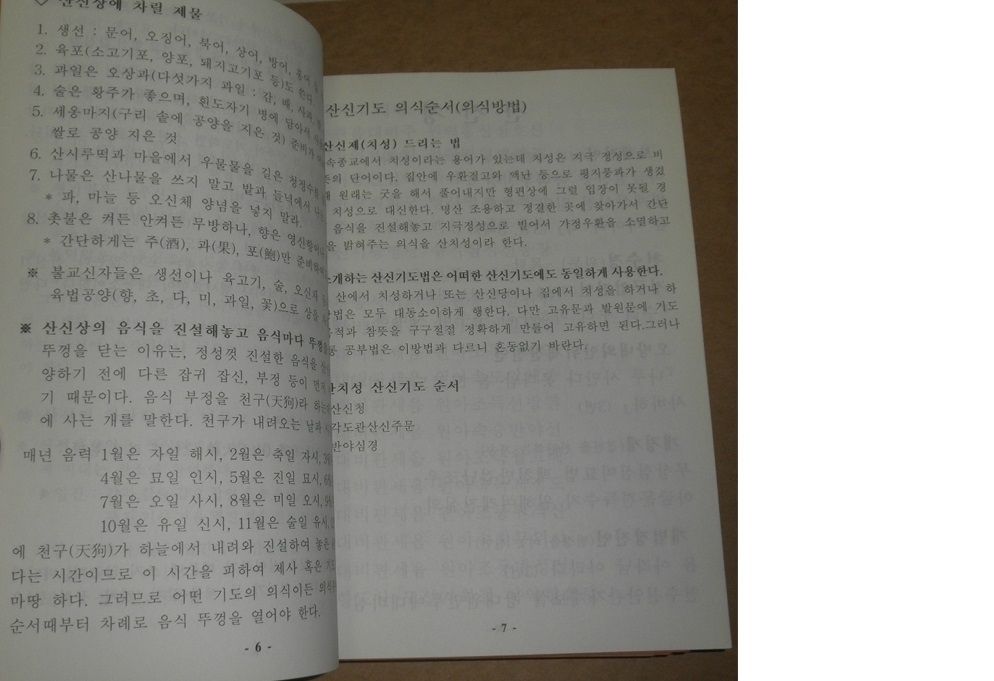 ◇ 산신상에 차릴 제물
1. 생선 : 문어, 오징어, 북어, 상어, 방어, 홍어 등
2. 육포(소고기포, 양포, 돼지고기포 등)도 한다.
3. 과일은 오상과(다섯가지 과일 : 감, 배, 사과,
4. 술은 황주가 좋으며, 흰도자기 병에 담아서
5. 세옹마지(구리 솥에 공양을 지은 것) 준비가
쌀로 공양 지은 것
6. 산시루떡과 마을에서 우물물을 길은 청정수
7. 나물은 산나물을 쓰지 말고 밭과 들녘에서
* 파, 마늘 등 오신채 양념을 넣지 말라.
8. 촛불은 켜든 안켜든 무방하나, 향은
* 간단하게는 주(酒), 과(果), 포(鮑)만
※ 불교신자들은 생선이나 육고기, 술, 오신채
육법공양(향, 초, 다, 미, 과일, 꽃)으로 상을
※ 산신상의 음식을 진설해놓고 음식마다
뚜껑을 닫는 이유는, 정성껏 진설한 음식을
양하기 전에 다른 잡귀 잡신, 부정 등이 먼저
기 때문이다. 음식 부정을 천구(天狗)라
에 사는 개를 말한다. 천구가 내려오는 날과
매년 음력 1월은 자일 해시, 2월은 축일 자시,
4월은 묘일 인시, 5월은 진일 묘시,
7월은 오일 사시, 8월은 미일 오시,
10월은 유일 신시, 11월은 술일 유시,
에 천구(天狗)가 하늘에서 내려와 진설하여 놓은
다는 시간이므로 이 시간을 피하여 제사 혹은
마땅 하다. 그러므로 어떤 기도의 의식이든
순서때부터 차례로 음식 뚜껑을 열어야 한다.
- 6 -
산신기도 의식순서(의식방법)
산신제(치성) 드리는 법
속종교에서 치성이라는 용어가 있는데 치성은 지극 정성으로 비
의 단어이다. 집안에 우환질고와 액난 등으로 평지풍파가 생겼
때 원래는 굿을 해서 풀어내지만 형편상에 그럴 입장이 못될 경
치성으로 대신한다. 명산 조용하고 정결한 곳에 찾아가서 간단
음식을 진설해놓고 지극정성으로 빌어서 가정우환을 소멸하고
을 밝혀주는 의식을 산치성이라 한다.
소개하는 산신기도법은 어떠한 산신기도에도 동일하게 사용한다.
산에서 치성하거나 또는 산신당이나 집에서 치성을 하거나 하
방법은 모두 대동소이하게 행한다. 다만 고유문과 발원문에 기도
목적과 참뜻을 구구절절 정확하게 만들어 고유하면 된다.그러나
공부법은 이방법과 다르니 혼동없기 바란다.
산치성 산신기도 순서
산신청
각도관산신주문
반야심경
- 7 -